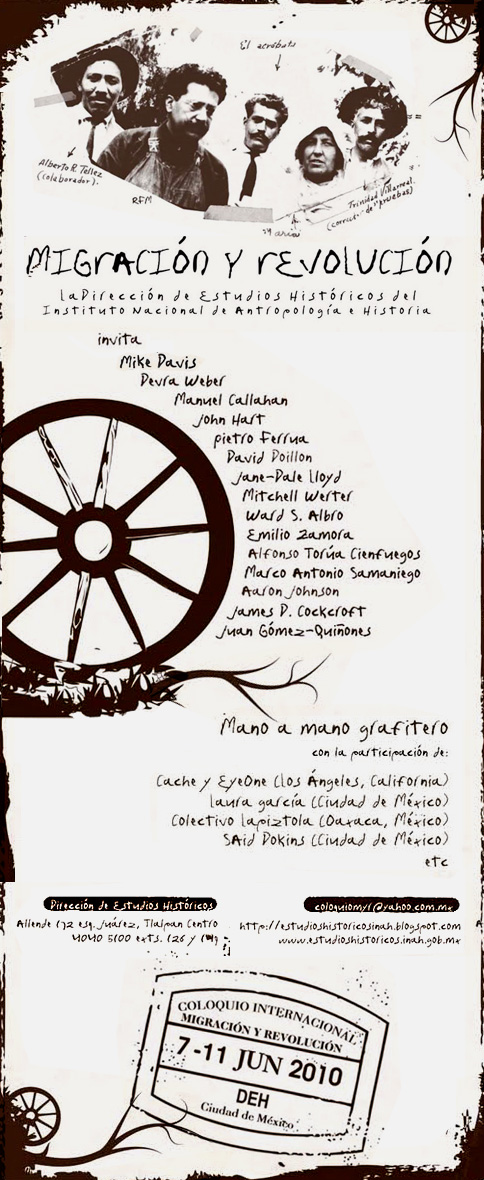 El acróbata
Alberto R. Téllez
(colaborador).
RFM
Trinidad Villarreal.
(corrector de pruebas)
MIGRACIÓN Y REVOLUCIÓN
la Dirección de Estudios Históricos del
Instituto Nacional de Antropología e Historia
invita
Mike Davis
Devra Weber
Manuel Callahan
John Hart
pietro Ferrua
David Doillon
Jane-Dale lloyd
Mitchell Werter
Ward S. Albro
Emilio Zamora
Alfonso Torúa Cienfuegos
Marco Antonio Samaniego
Aaron Johnson
James D. Cockcroft
Juan Gómez-Quiñones
Mano a mano grafitero
con la participación de:
Cache y EyeOne (los Ángeles, California)
laura garcía (Ciudad de México)
Colectivo lapiztola (Oaxaca, México)
SAid Dokins (Ciudad de México)
etc
Dirección de Estudios Históricos
Allende 172 esq. Juárez, Tlalpan Centro
4040 5100 exts. 126 y
coloquiomyr@yahoo.com.mx
http://estudioshistoricosinah.blogspot.com
www.estudioshistoricos.inah.gob.mx
COLOQUIO INTERNACIONAL
MIGRACIÓN Y REVOLUCIÓN
7-11 JUN 2010
DEH
Ciudad de México